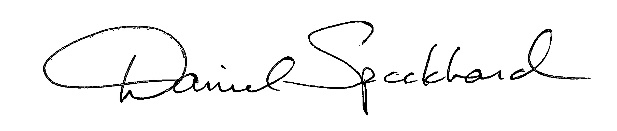 Daniel Speckhard